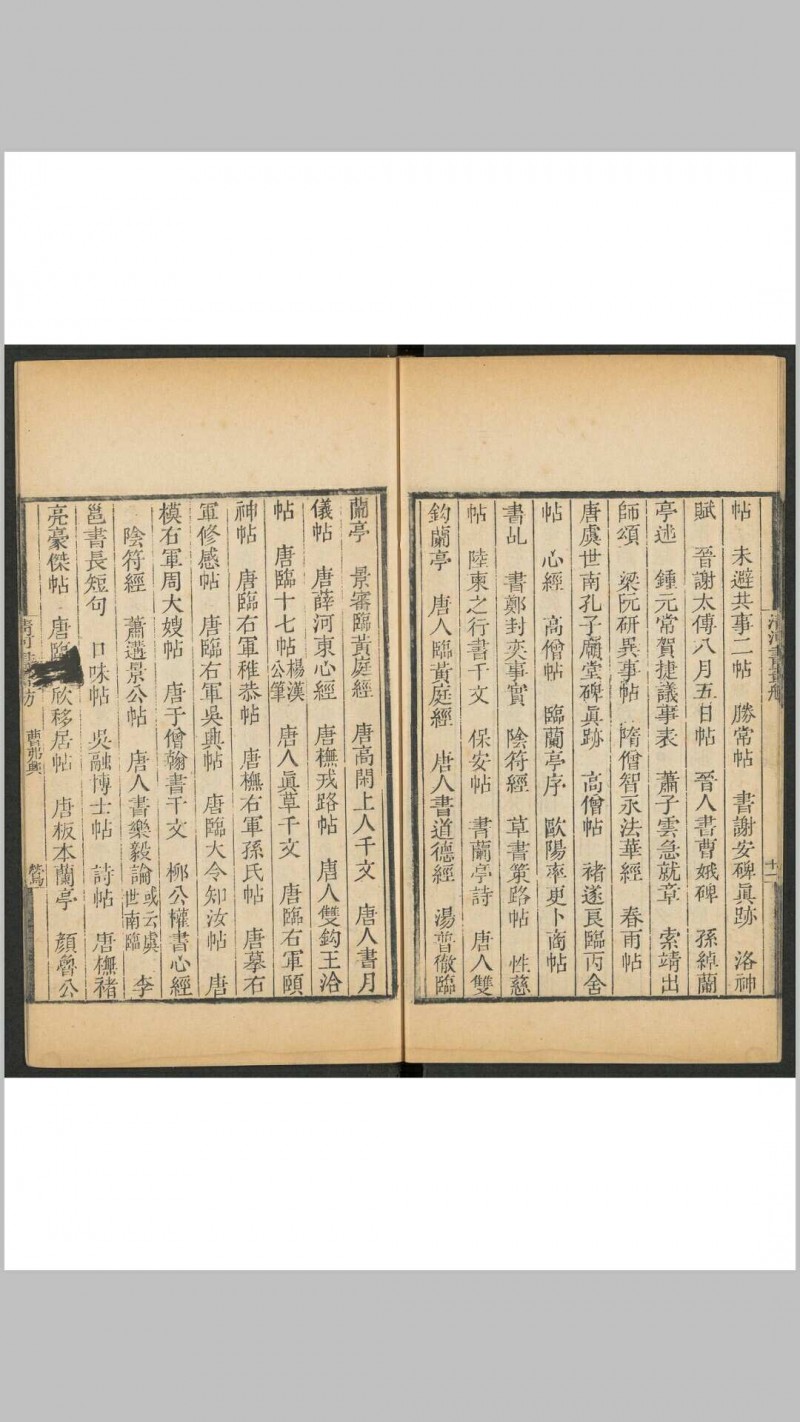 帖　未避共事二帖　勝常帖　書謝安碑眞跡　洛神
賦　晉謝太傅八月五日帖　晉人書曹娥碑　孫綽蘭
亭述　鍾元常賀捷議事表　蕭子雲急就章　索靖出
師頌　梁阮研異事帖　隋僧智永法華經　春雨帖
唐虞世南孔子廟堂碑眞跡　高僧帖　褚遂良臨丙舍
帖　心經　高僧帖　臨蘭亭序　歐陽率更卜商帖
書乩　書鄭封夾事實　陰符經　草書策路帖　性慈
帖　陸柬之行書千文　保安帖　書蘭亭詩　唐人雙
鈎蘭亭　唐人臨黃庭經　唐人書道德經　湯普徹臨
蘭亭　景審臨黃庭經　唐高閑上人千文　唐人書月
儀帖　唐薛河東心經　唐橅戎路帖　唐人雙鈎王洽
帖　唐臨十七帖楊漢公筆　唐人眞草千文　唐臨右軍頤
神帖　唐臨右軍稚恭帖　唐橅右軍孫氏帖　唐摹右
軍修感帖　唐臨右軍吳興帖　唐臨大令知汝帖　唐
模右軍周大嫂帖　唐于僧翰書千文　柳公權書心經
陰符經　蕭遘景公帖　唐人書樂毅論或云虞世南臨　李
邕書長短句　口味帖　吳融博士帖　詩帖　唐橅褚
亮豪傑帖　唐臨欣移居帖　唐板本蘭亭　顏魯公
清河書畫舫
曹弗興
鶯
十一